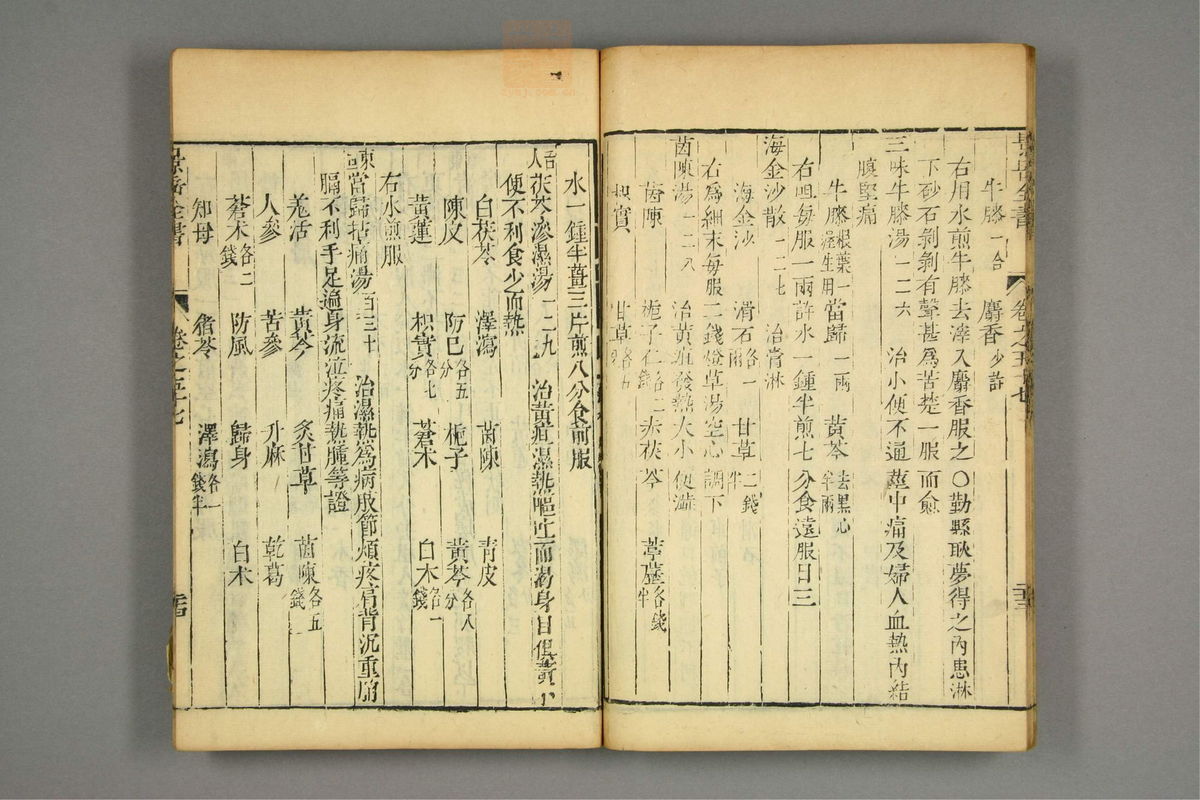 景岳全書 卷之五十七
牛膝一合 麝香少許
右用水煎牛膝去滓入麝香服之○勤縣耿夢得之內患淋
下砂石剝剝有聲甚爲苦楚一服而愈
三味牛膝湯一二六 治小便不通莖中痛及婦人血熱內結
腹堅痛
牛膝根葉一握生用 當歸一兩 黃芩去黑心半兩
右㕮每服一兩許水一鍾半煎七分食遠服日三
海金沙散一二七 治膏淋
海金沙 滑石各一兩 甘草二錢半
右爲細末每服二錢燈草湯空心調下
茵陳湯一二八 治黃疸發熱大小便濇
茵陳 梔子仁各二錢 赤茯苓 葶藶各錢半
枳實 甘草各五
水一鍾半薑三片煎八分食前服
人 茯苓滲濕湯一二九 治黃疸濕熱嘔吐而渴身目俱黃小
便不利食少而熱
白茯苓 澤瀉 茵陳 青皮
陳皮 防己各五分 梔子 黃芩各八分
黃蓮 枳實各七分 蒼朮 白朮各一錢
右水煎服
東垣當歸拈痛湯百三十 治濕熱爲病肢節煩疼肩背沉重胸
膈不利手足遍身流注疼痛熱腫等證
羗活 黃芩 炙甘草 茵陳各五錢
人參 苦參 升麻 乾葛
蒼朮各二錢 防風 歸身 白朮
知母 豬苓 澤瀉各一錢半
景岳全書 卷之五十七